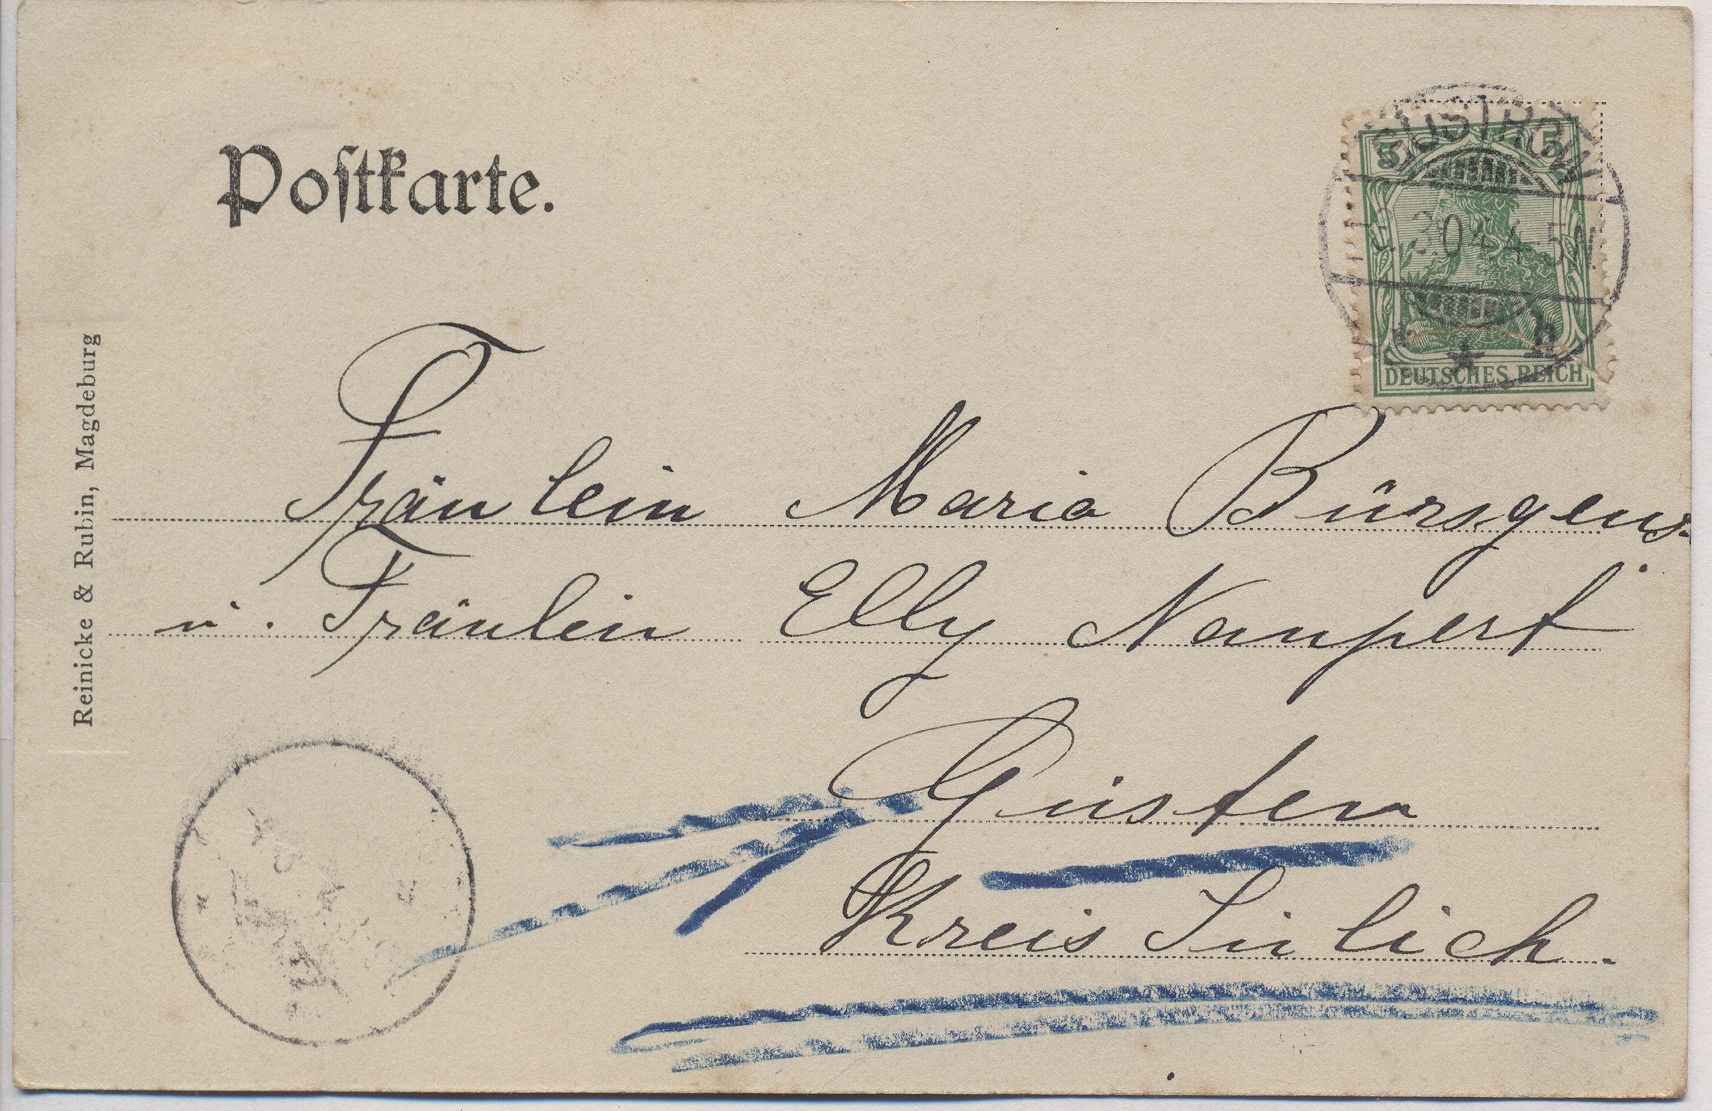 Poſtkarte.
GÜSTROW
3.04.4-5N
* h
5 5
DEUTSCHES REICH
Reinicke & Rubin, Magdeburg
Fräulein Maria Bürsgens.
u. Fräulein Elly Naupert
Güsten
Kreis Jülich.